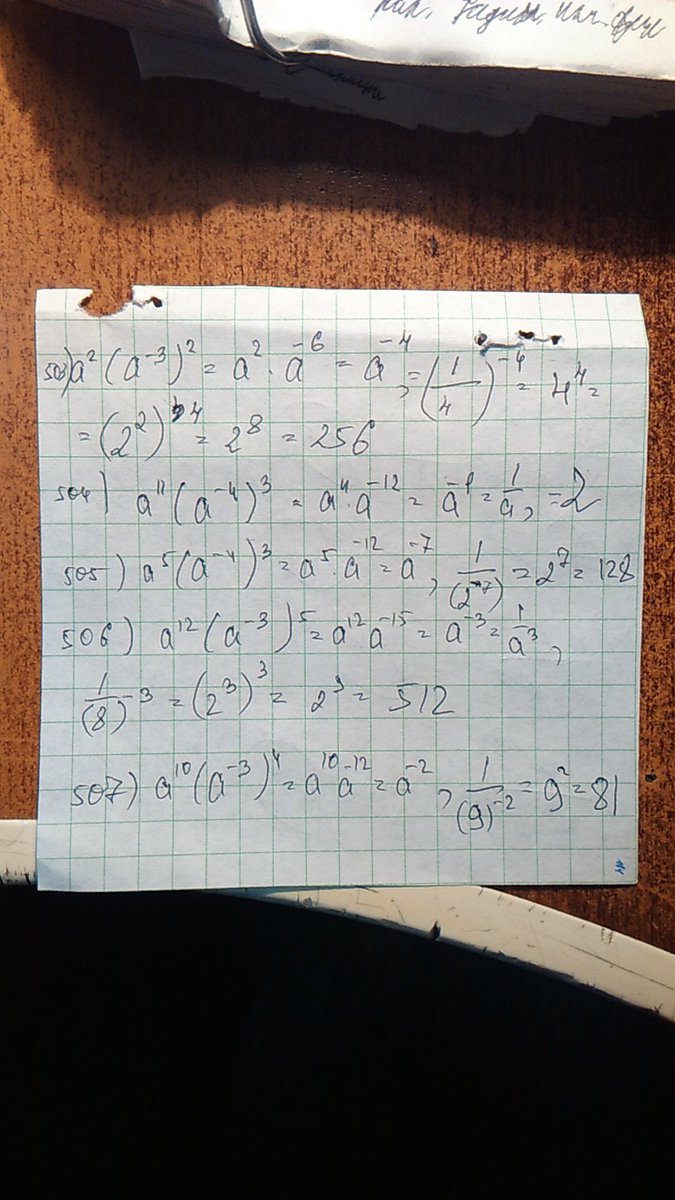 503) a² (a⁻³)² = a² · a⁻⁶ = a⁻⁴, = (1/4)⁻⁴ = 4⁴ =
= (2²)⁴ = 2⁸ = 256
504) a¹¹ (a⁻⁴)³ = a¹¹ · a⁻¹² = a⁻¹ = 1/a, = 2
505) a⁵ (a⁻⁴)³ = a⁵ · a⁻¹² = a⁻⁷, 1/(2⁻⁷) = 2⁷ = 128
506) a¹² (a⁻³)⁵ = a¹² a⁻¹⁵ = a⁻³ = 1/a³,
1/(8)⁻³ = (2³)³ = 2⁹ = 512
507) a¹⁰ (a⁻³)⁴ = a¹⁰ a⁻¹² = a⁻², 1/(9)⁻² = 9² = 81